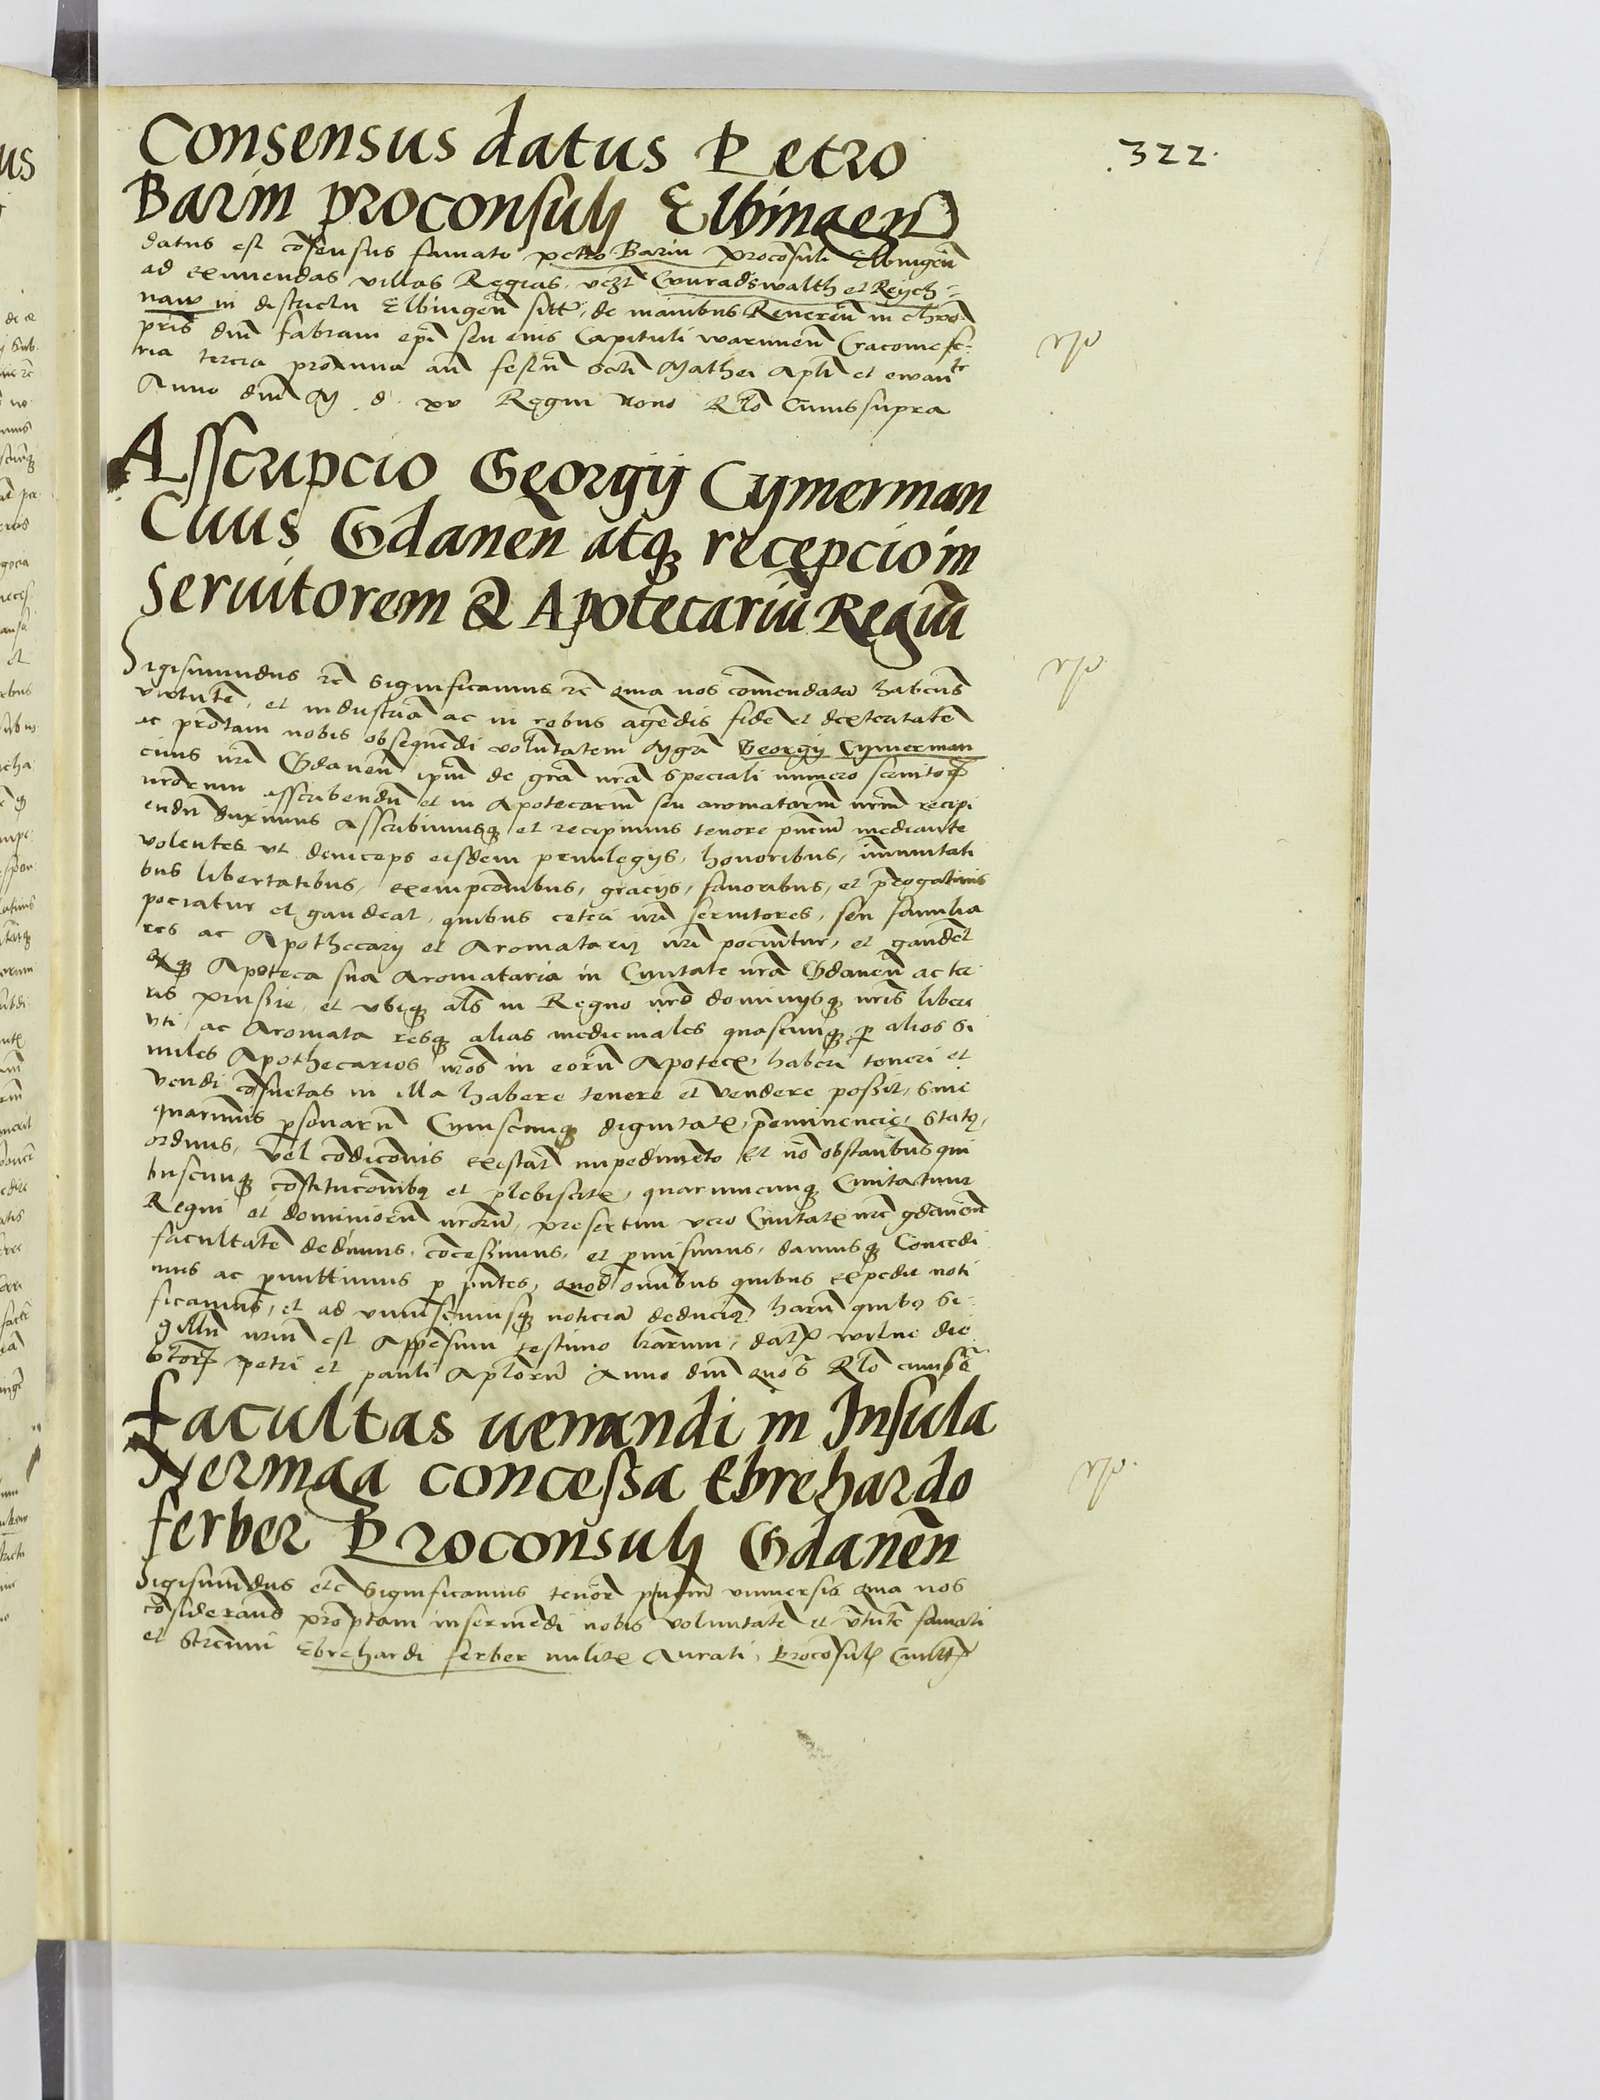 322.
Consensus datus Petro
Barin proconsulj Elbingen
datus est cōsensus famato petro Barin Procōsuli Elbingeñ
ad eximendas villas Regias, vczt Cunradswalth et Reych=
naw in districtu Elbingeñ sitt, de manibus Reuereñ in chro
pris dni Fabiani epi seu eius Capituli warmieñ Cracouie fe=
ria tercia proxima añ festū scti Mathei Apli et ewan
Anno dni M d xv Regni nono Rlo Cuius supra
Asscripcio Georgij Cymerman
Ciuis Gdaneñ atq recepcio in
Seruitorem & Apotecariū Regiū
Sigismundus rc Significamus rc qma nos comendata habeñs
virtutē, et industriā ac in rebus agēdis fidē et dexteritatē
ac promtam nobis obsequēdi volūtatem Mgri Georgij Cymerman
ciuis nri Gdaneñ ipm de gra nra speciali numero seruitoꝝ
nrorum asscribendū et in Apotecariū seu aromatariū nrm recipi
endū duximus Asscribimusq et recipimus tenore pñtiū mediante
volentes vt deinceps eisdem priuilegijs, honoribus, imunitati
bus libertatibus, exempcōnibus, gracijs, fauoribus, et prerogatiuis
pociatur et gaudeat, quibus ceteri nri seruitores, seu familia
res ac Apothecarij et Aromatarij nri pociūtur, et gaudēt
Apoteca sua Aromataria in Ciuitate nra Gdaneñ ac ter
ris prussie, et vbiq als in Regno nro dominijsq nris libere
vti ac Aromata resq alias medicinales quascunq p alios si
miles Apothecarios nros in eorū Apotecis haberi teneri et
vendi cōsuetas in illa habere tenere et vendere possit, sine
quarumuis psonarū Cuiuscunq dignitatis, preminencie, status,
ordinis, vel cōdicōnis existāt impedimēto Et nō obstātibus qui
buscunq cōstitucōnibus et plebiscitis, quarumcunq Ciuitatum
Regni et dominiorū nrorū, presertim vero Ciuitatis nre gdaneñ
facultatē dedimus, cōcessimus, et pmisimus, damusq Concedi
mus ac pmittimus p pñtes, quod omībus quibus expedit noti
ficamus, et ad vniuscuiusq noticia deducimus harū quibus si
gillū nrm est Appēsum testimo lrarum, datꝝ wilne die
Petri et pauli Aplorū Anno dni quo s Rlo cuius s
Facultas uenandi in Insula
Neringa concessa Ebrehardo
ferber Proconsulj Gdanēn
Sigismūdus etc Significamus tenore pñtiū vniuersis qma nos
cōsiderañ promptam inseruiēdi nobis voluntatē et virtutē famati
et Strenui Ebrehardi ferber militis Aurati, Procōsulis Ciuitt